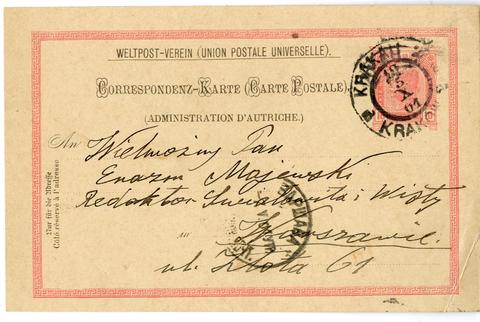 WELTPOST-VEREIN (UNION POSTALE UNIVERSELLE).
CORRESPONDENZ-KARTE (CARTE POSTALE).
(ADMINISTRATION D'AUTRICHE.)
KRAKAU
KRAK
X
01
An
Wielmożny Pan
Erazm Majewski
Redaktor Światowita i Wisły
in
Warszawie.
ul. Złota 61
Nur für die Adresse
Côté réservé à l'adresse